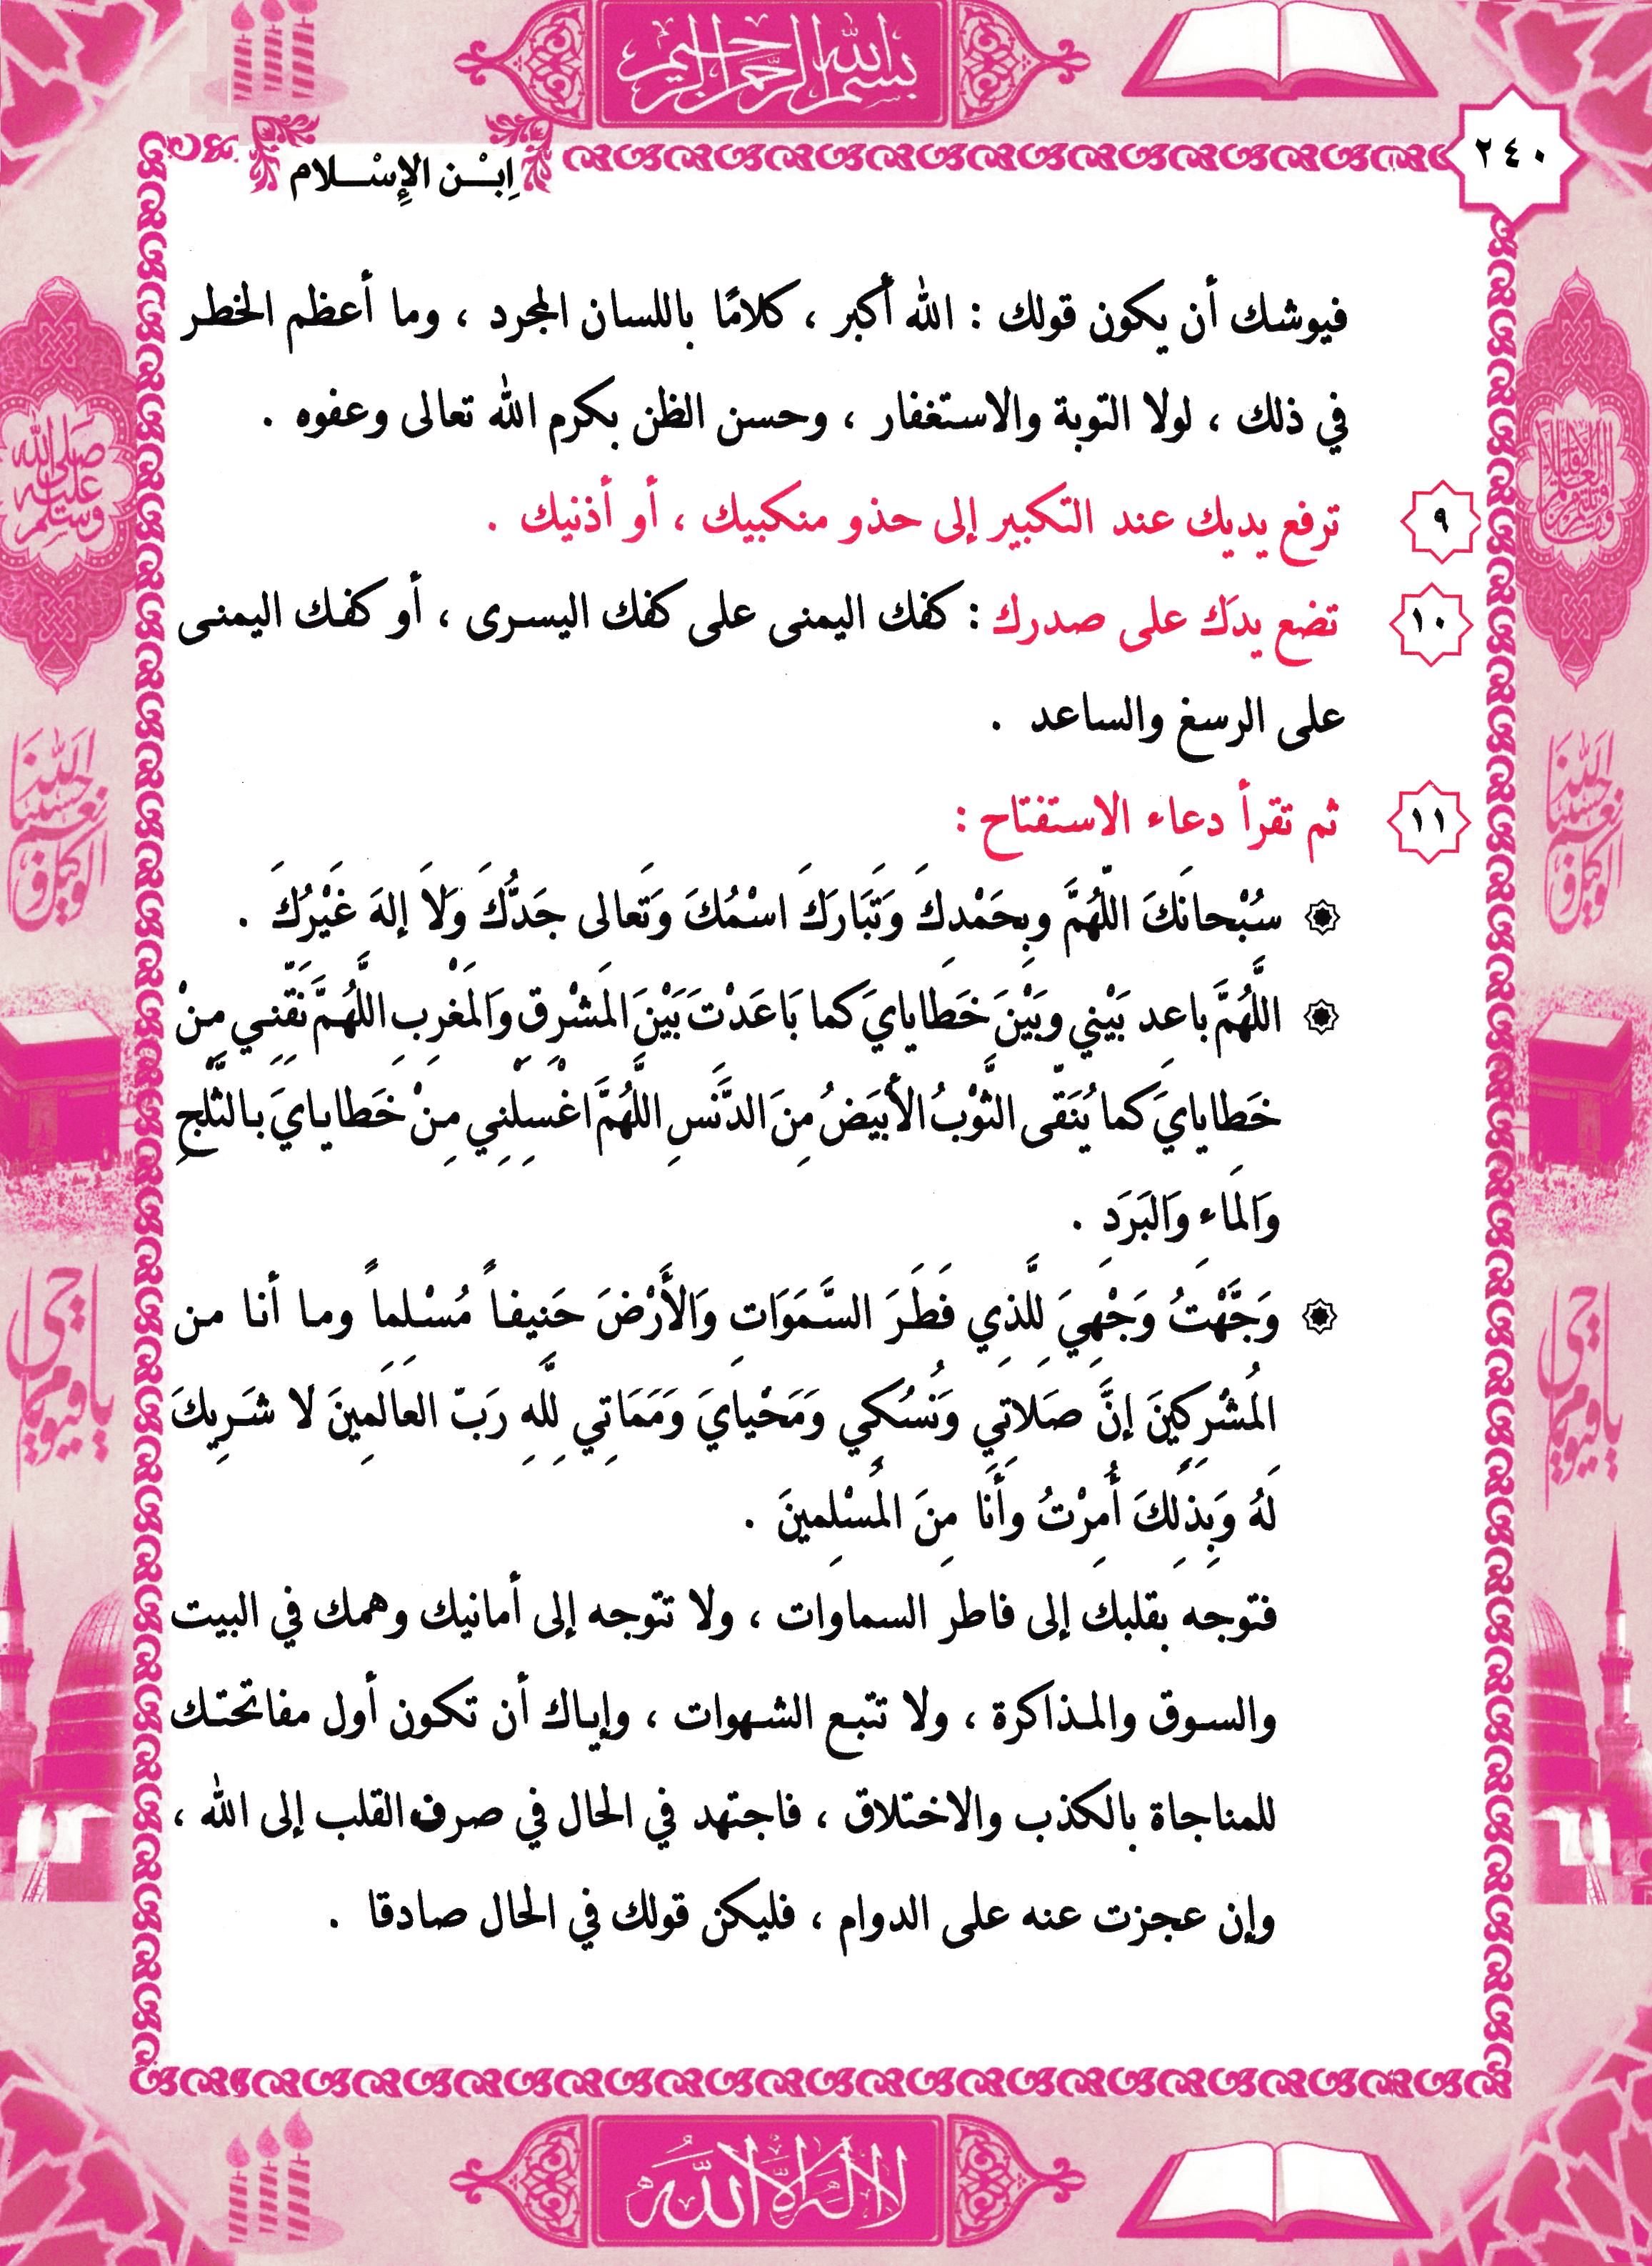 بسم الله الرحمن الرحيم
٢٤٠
اِبْـــن الإِسْـــلام
فيوشك أن يكون قولك : الله أكبر ، كلامًا باللسان المجرد ، وما أعظم الخطر
في ذلك ، لولا التوبة والاستغفار ، وحسن الظن بكرم الله تعالى وعفوه .
٩ ترفع يديك عند التكبير إلى حذو منكبيك ، أو أذنيك .
١٠ تضع يدَك على صدرك : كفك اليمنى على كفك اليسرى ، أو كفك اليمنى
على الرسغ والساعد .
١١ ثم تقرأ دعاء الاستفتاح :
سُبْحانَكَ اللّهُمَّ وبِحَمْدِكَ وَتَبَارَكَ اسْمُكَ وَتَعالى جَدُّكَ وَلاَ إلهَ غَيْرُكَ .
اللَّهُمَّ باعِد بَيْنِي وبَيْنَ خَطايايَ كما بَاعَدْتَ بَيْنَ المَشْرِقِ وَالمَغْرِبِ اللَّهُمَّ نَقِّنِي مِنْ
خَطايايَ كما يُنَقّى الثَّوْبُ الأبيَضُ مِنَ الدَّنَسِ اللَّهُمَّ اغْسِلْنِي مِنْ خَطايايَ بالثَّلْجِ
وَالمَاءِ وَالبَرَدِ .
وَجَّهْتُ وَجْهِيَ لِلَّذِي فَطَرَ السَّمَوَاتِ وَالأَرْضَ حَنِيفاً مُسْلِماً وما أنا من
المُشْرِكِينَ إنَّ صَلاتِي وَنُسُكِي وَمَحْيايَ وَمَمَاتِي لِلَّهِ رَبّ العَالَمِينَ لا شَرِيكَ
لَهُ وَبِذلِكَ أُمِرْتُ وأَنا مِنَ المُسْلِمينَ .
فتوجه بقلبك إلى فاطر السماوات ، ولا تتوجه إلى أمانيك وهمك في البيت
والسوق والمذاكرة ، ولا تتبع الشهوات ، وإياك أن تكون أول مفاتحتك
للمناجاة بالكذب والاختلاق ، فاجتهد في الحال في صرف القلب إلى الله ،
وإن عجزت عنه على الدوام ، فليكن قولك في الحال صادقا .
صلى الله عليه وسلم
حسبنا الله ونعم الوكيل
يا حي يا قيوم
حسبنا الله ونعم الوكيل
يا حي يا قيوم
لا إله إلا الله